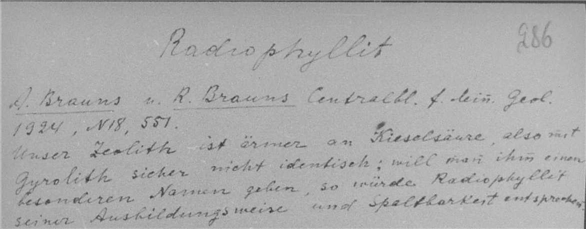 286
Radiophyllit
D. Brauns u. R. Brauns Centralbl. f. Min̄. Geol.
1924, N18, 551.
Unser Zeolith ist ärmer an Kieselsäure, also mit
Gyrolith sicher nicht identisch; will man̄ ihm̄ einen
besonderen Namen geben, so würde Radiophyllit
seiner Ausbildungsweise und Spaltbarkeit entsprechen